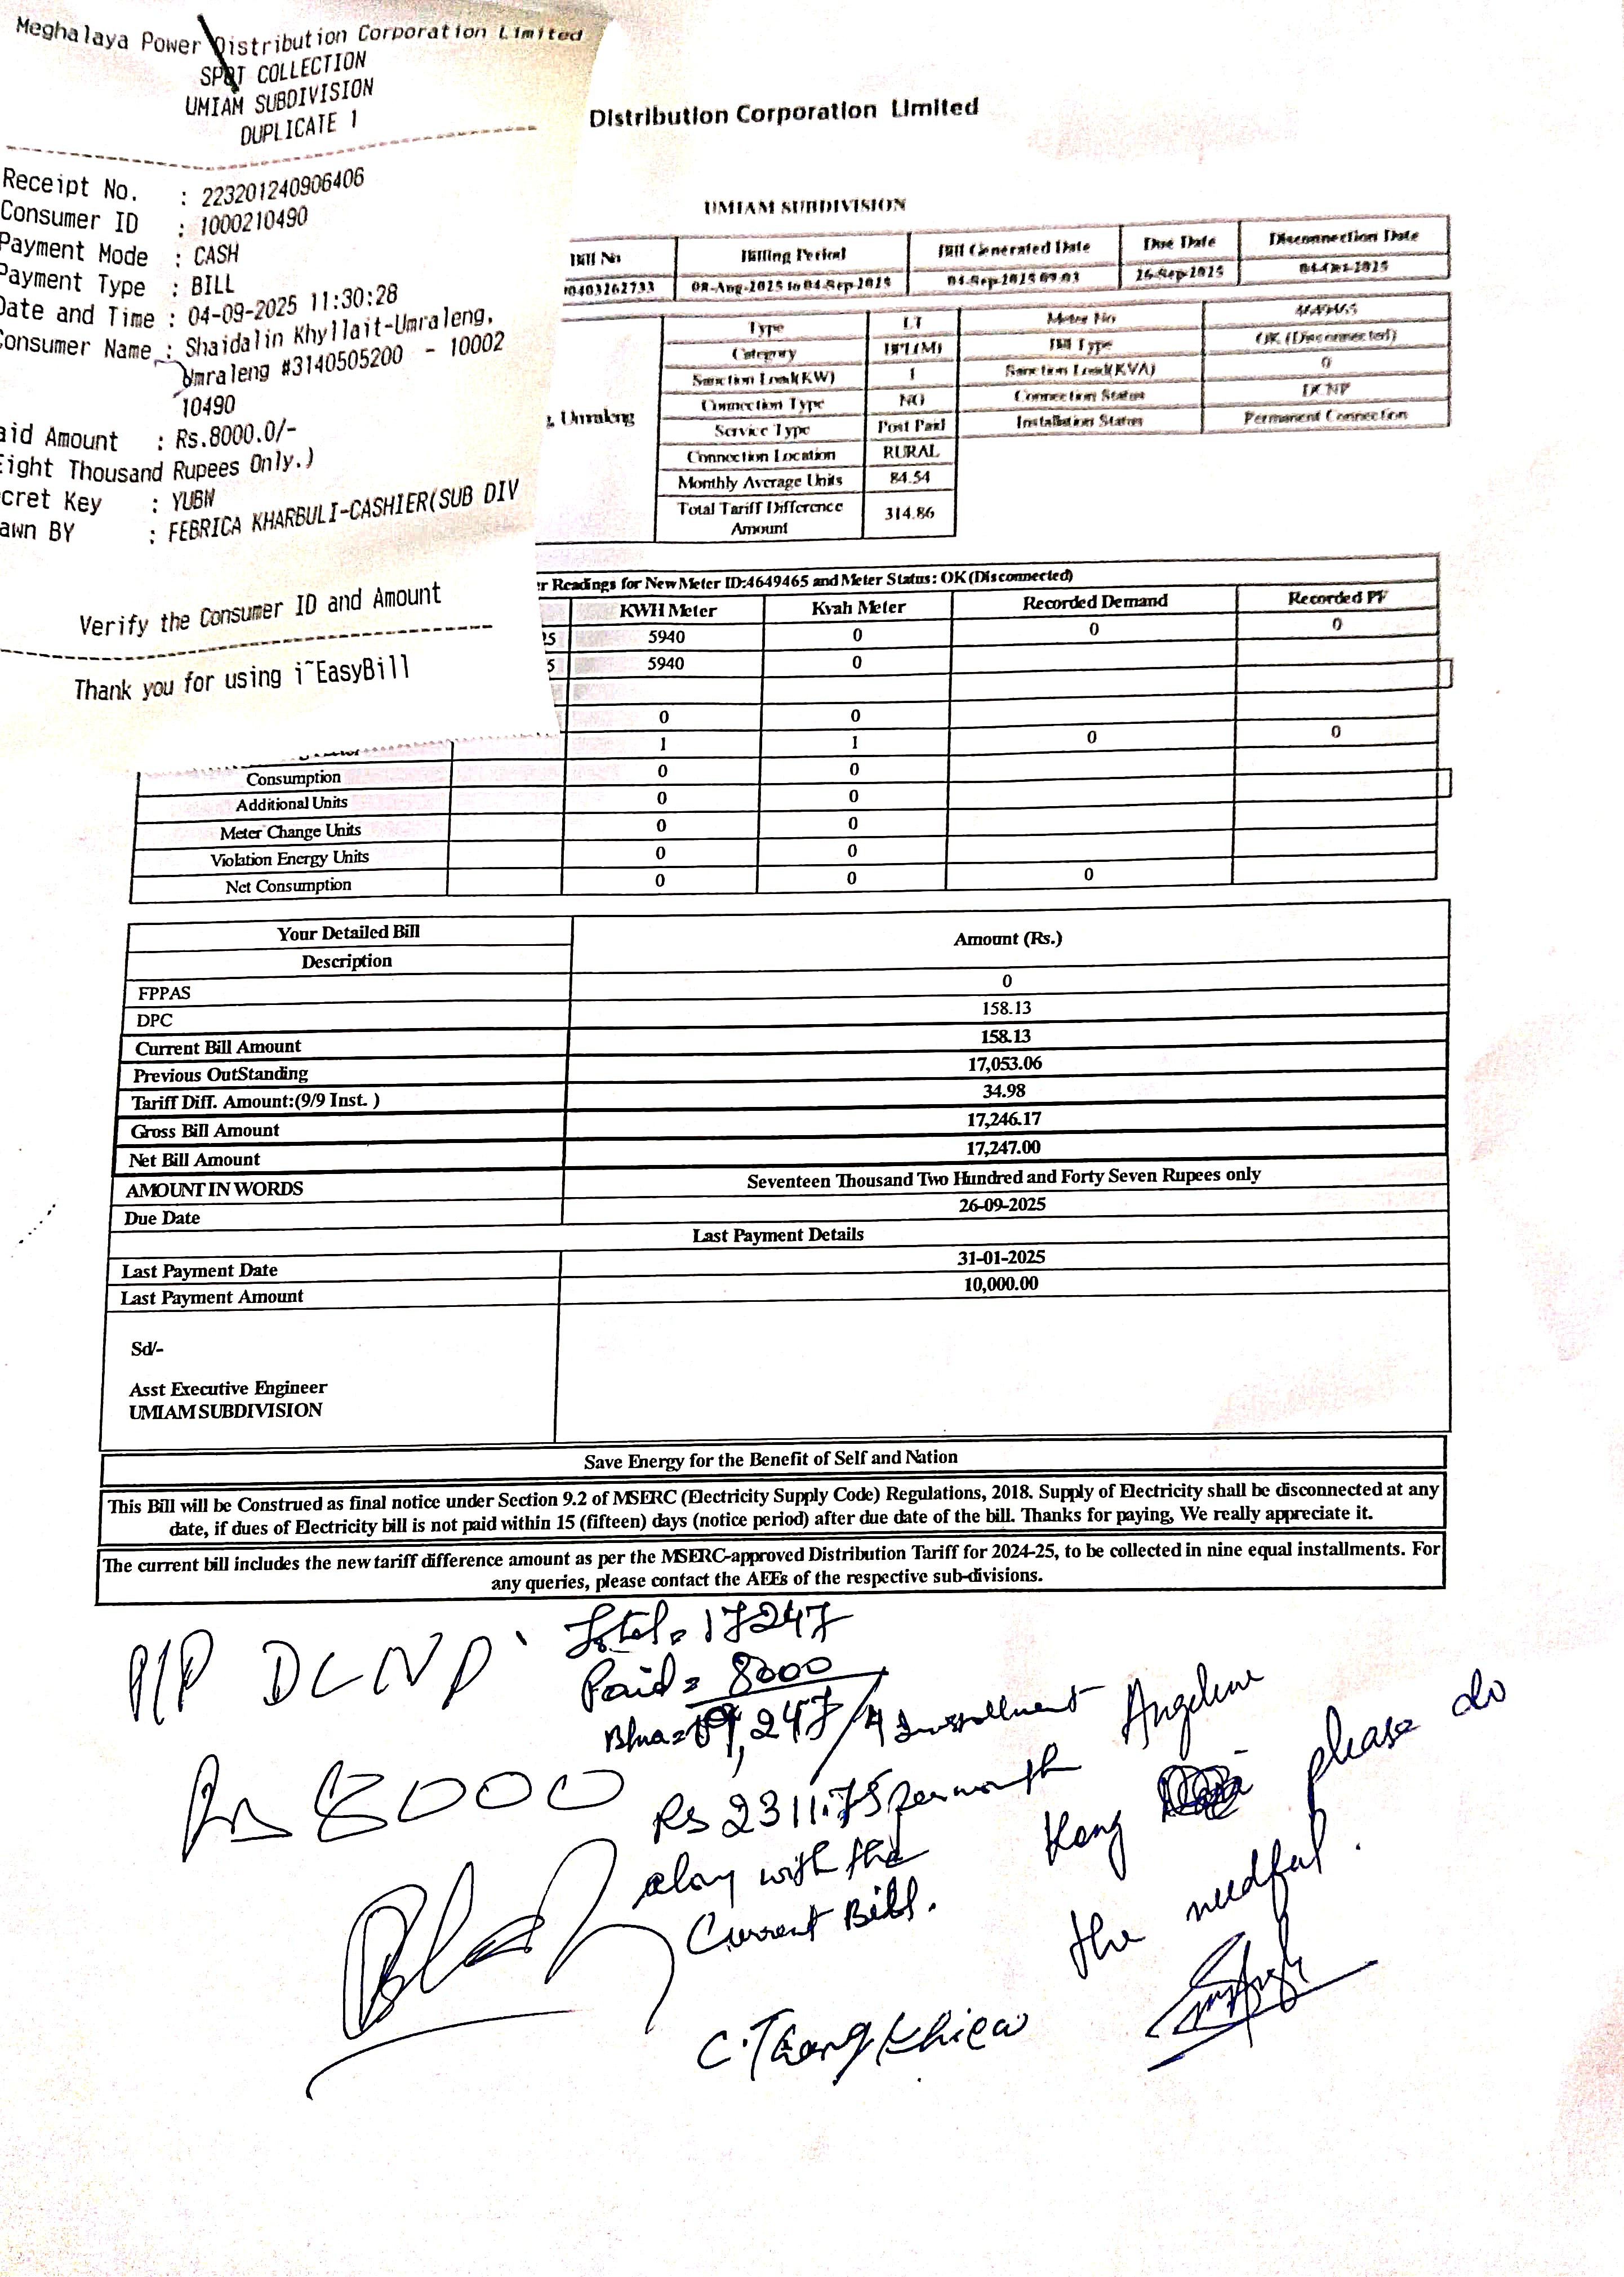 Meghalaya Power Distribution Corporation Limited
SPOT COLLECTION
UMIAM SUBDIVISION
DUPLICATE 1
Receipt No. : 223201240906406
Consumer ID : 1000210490
Payment Mode : CASH
Payment Type : BILL
Date and Time : 04-09-2025 11:30:28
Consumer Name : Shaidalin Khyllait-Umraleng,
Umraleng #3140505200 - 10002
10490
aid Amount : Rs.8000.0/-
Eight Thousand Rupees Only.)
cret Key : YUBW
awn BY : FEBRICA KHARBULI-CASHIER(SUB DIV
Verify the Consumer ID and Amount
Thank you for using i~EasyBill
Distribution Corporation Limited
UMIAM SUBDIVISION
Bill No Billing Period Bill Generated Date Due Date Disconnection Date
00403262733 08-Aug-2025 to 04-Sep-2025 04-Sep-2025 09:03 26-Sep-2025 04-Oct-2025
Type LT Meter No 4649465
Category BPL(M) Bill Type OK (Disconnected)
Sanction Load(KW) 1 Sanction Load(KVA) 0
, Umraleng Connection Type NO Connection Status DCNP
Service Type Post Paid Installation Status Permanent Connection
Connection Location RURAL
Monthly Average Units 84.54
Total Tariff Difference Amount 314.86
r Readings for New Meter ID:4649465 and Meter Status: OK(Disconnected)
KWH Meter Kvah Meter Recorded Demand Recorded PF
25 5940 0 0 0
5 5940 0
0 0
1 1 0 0
Consumption 0 0
Additional Units 0 0
Meter Change Units 0 0
Violation Energy Units 0 0
Net Consumption 0 0 0
Your Detailed Bill
Description Amount (Rs.)
FPPAS 0
DPC 158.13
Current Bill Amount 158.13
Previous OutStanding 17,053.06
Tariff Diff. Amount:(9/9 Inst. ) 34.98
Gross Bill Amount 17,246.17
Net Bill Amount 17,247.00
AMOUNT IN WORDS Seventeen Thousand Two Hundred and Forty Seven Rupees only
Due Date 26-09-2025
Last Payment Details
Last Payment Date 31-01-2025
Last Payment Amount 10,000.00
Sd/-
Asst Executive Engineer
UMIAM SUBDIVISION
Save Energy for the Benefit of Self and Nation
This Bill will be Construed as final notice under Section 9.2 of MSERC (Electricity Supply Code) Regulations, 2018. Supply of Electricity shall be disconnected at any
date, if dues of Electricity bill is not paid within 15 (fifteen) days (notice period) after due date of the bill. Thanks for paying, We really appreciate it.
The current bill includes the new tariff difference amount as per the MSERC-approved Distribution Tariff for 2024-25, to be collected in nine equal installments. For
any queries, please contact the AEEs of the respective sub-divisions.
P/P DCNP
Rs 8000
Total = 17247
Paid = 8000
9,247/4 Installment
Rs 2311.75 per month
along with the
Current Bill.
C. Thangkhiew
Angeline
Kong please do
the needful.